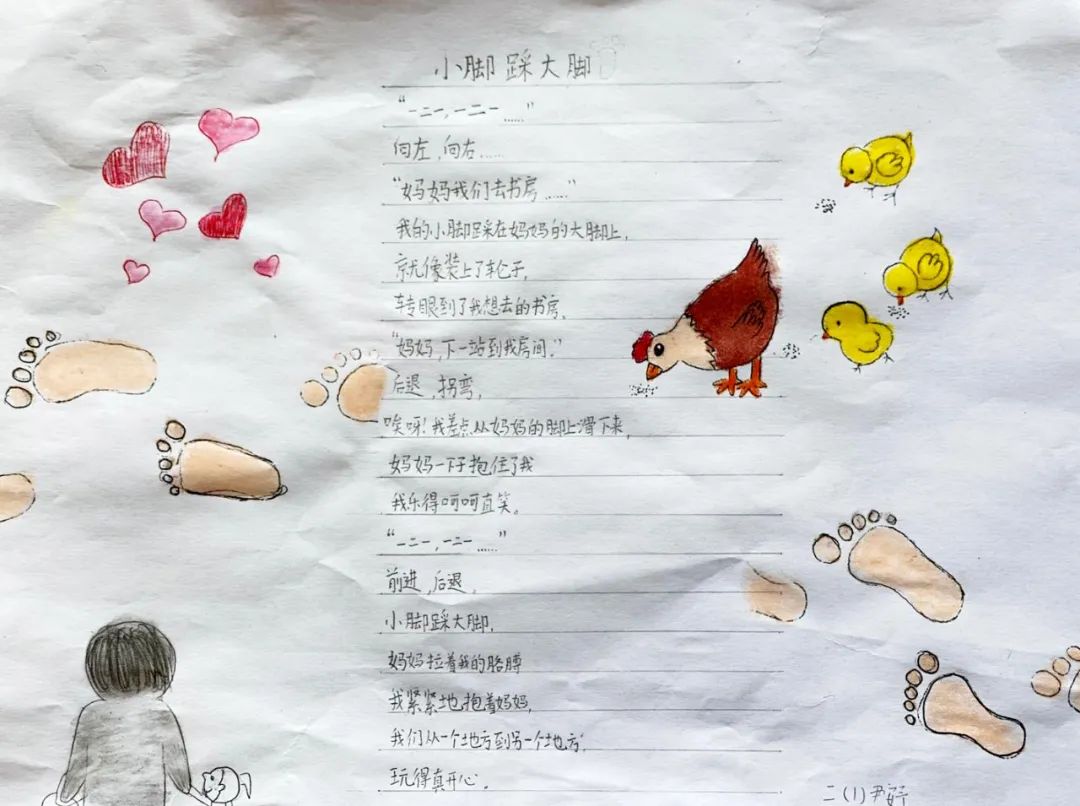 小脚踩大脚
“一二一,一二一……”
向左,向右……
“妈妈我们去书房……”
我的小脚踩在妈妈的大脚上,
就像装上了轮子,
转眼到了我想去的书房。
“妈妈,下一站到我房间。”
后退,拐弯,
唉呀!我差点从妈妈的脚上滑下来,
妈妈一下子抱住了我
我乐得呵呵直笑。
“一二一,一二一……”
前进,后退,
小脚踩大脚,
妈妈拉着我的胳膊
我紧紧地抱着妈妈,
我们从一个地方到另一个地方,
玩得真开心。
二(1)尹